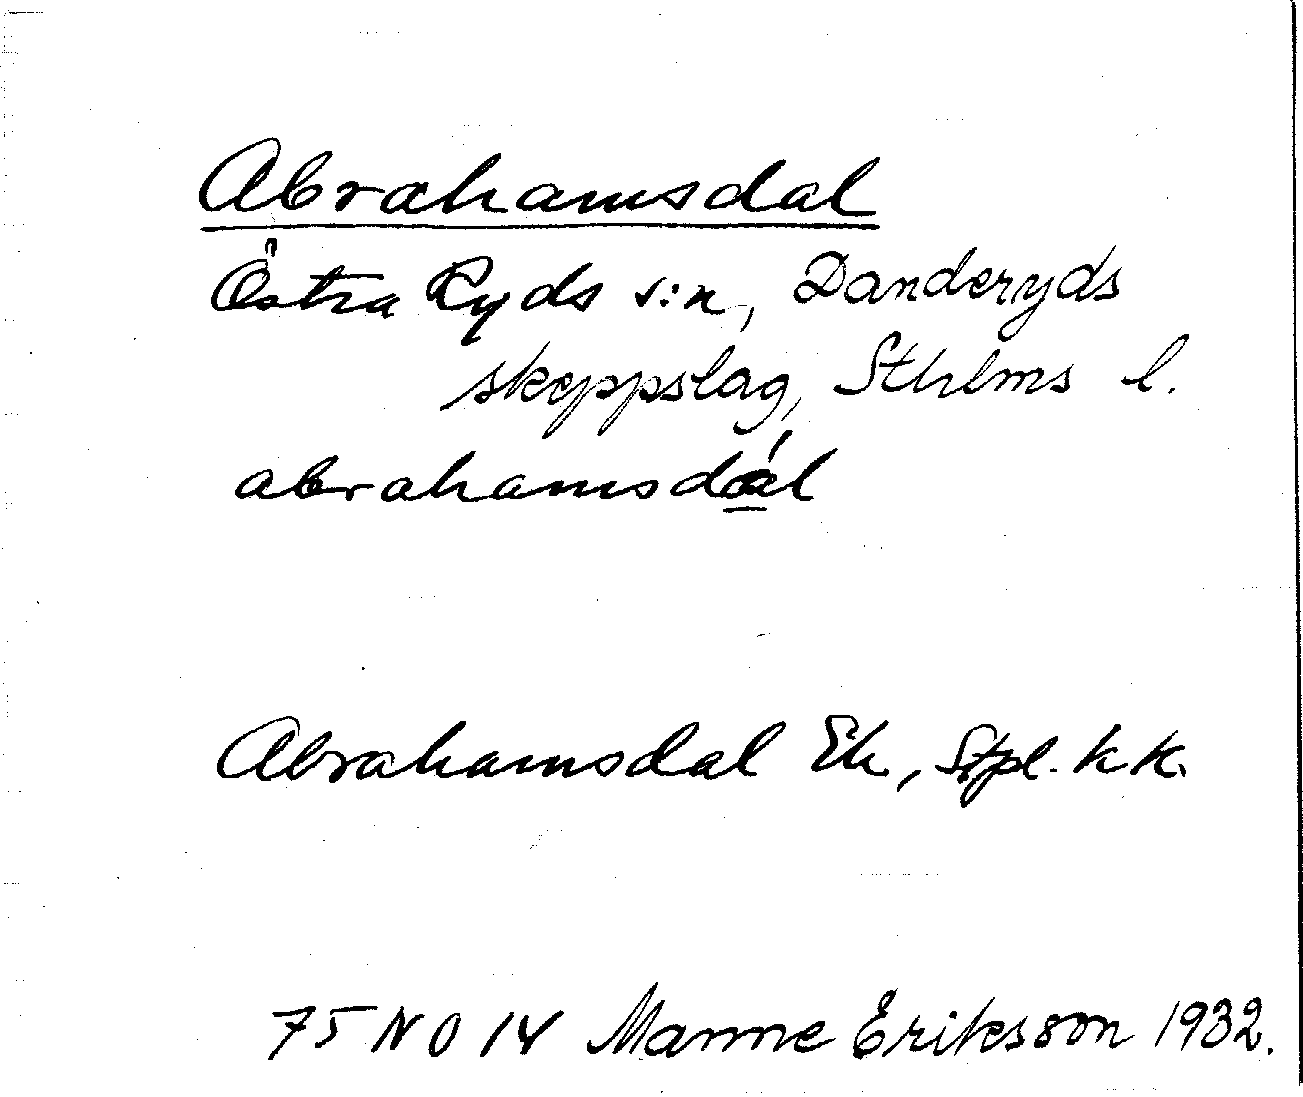 Abrahamsdal
Östra Ryds s:n, Danderyds
skeppslag, Sthlms l.
abrahamsdál
Abrahamsdal Ek, Stpl. k k.
75 NO 14 Manne Eriksson 1932.